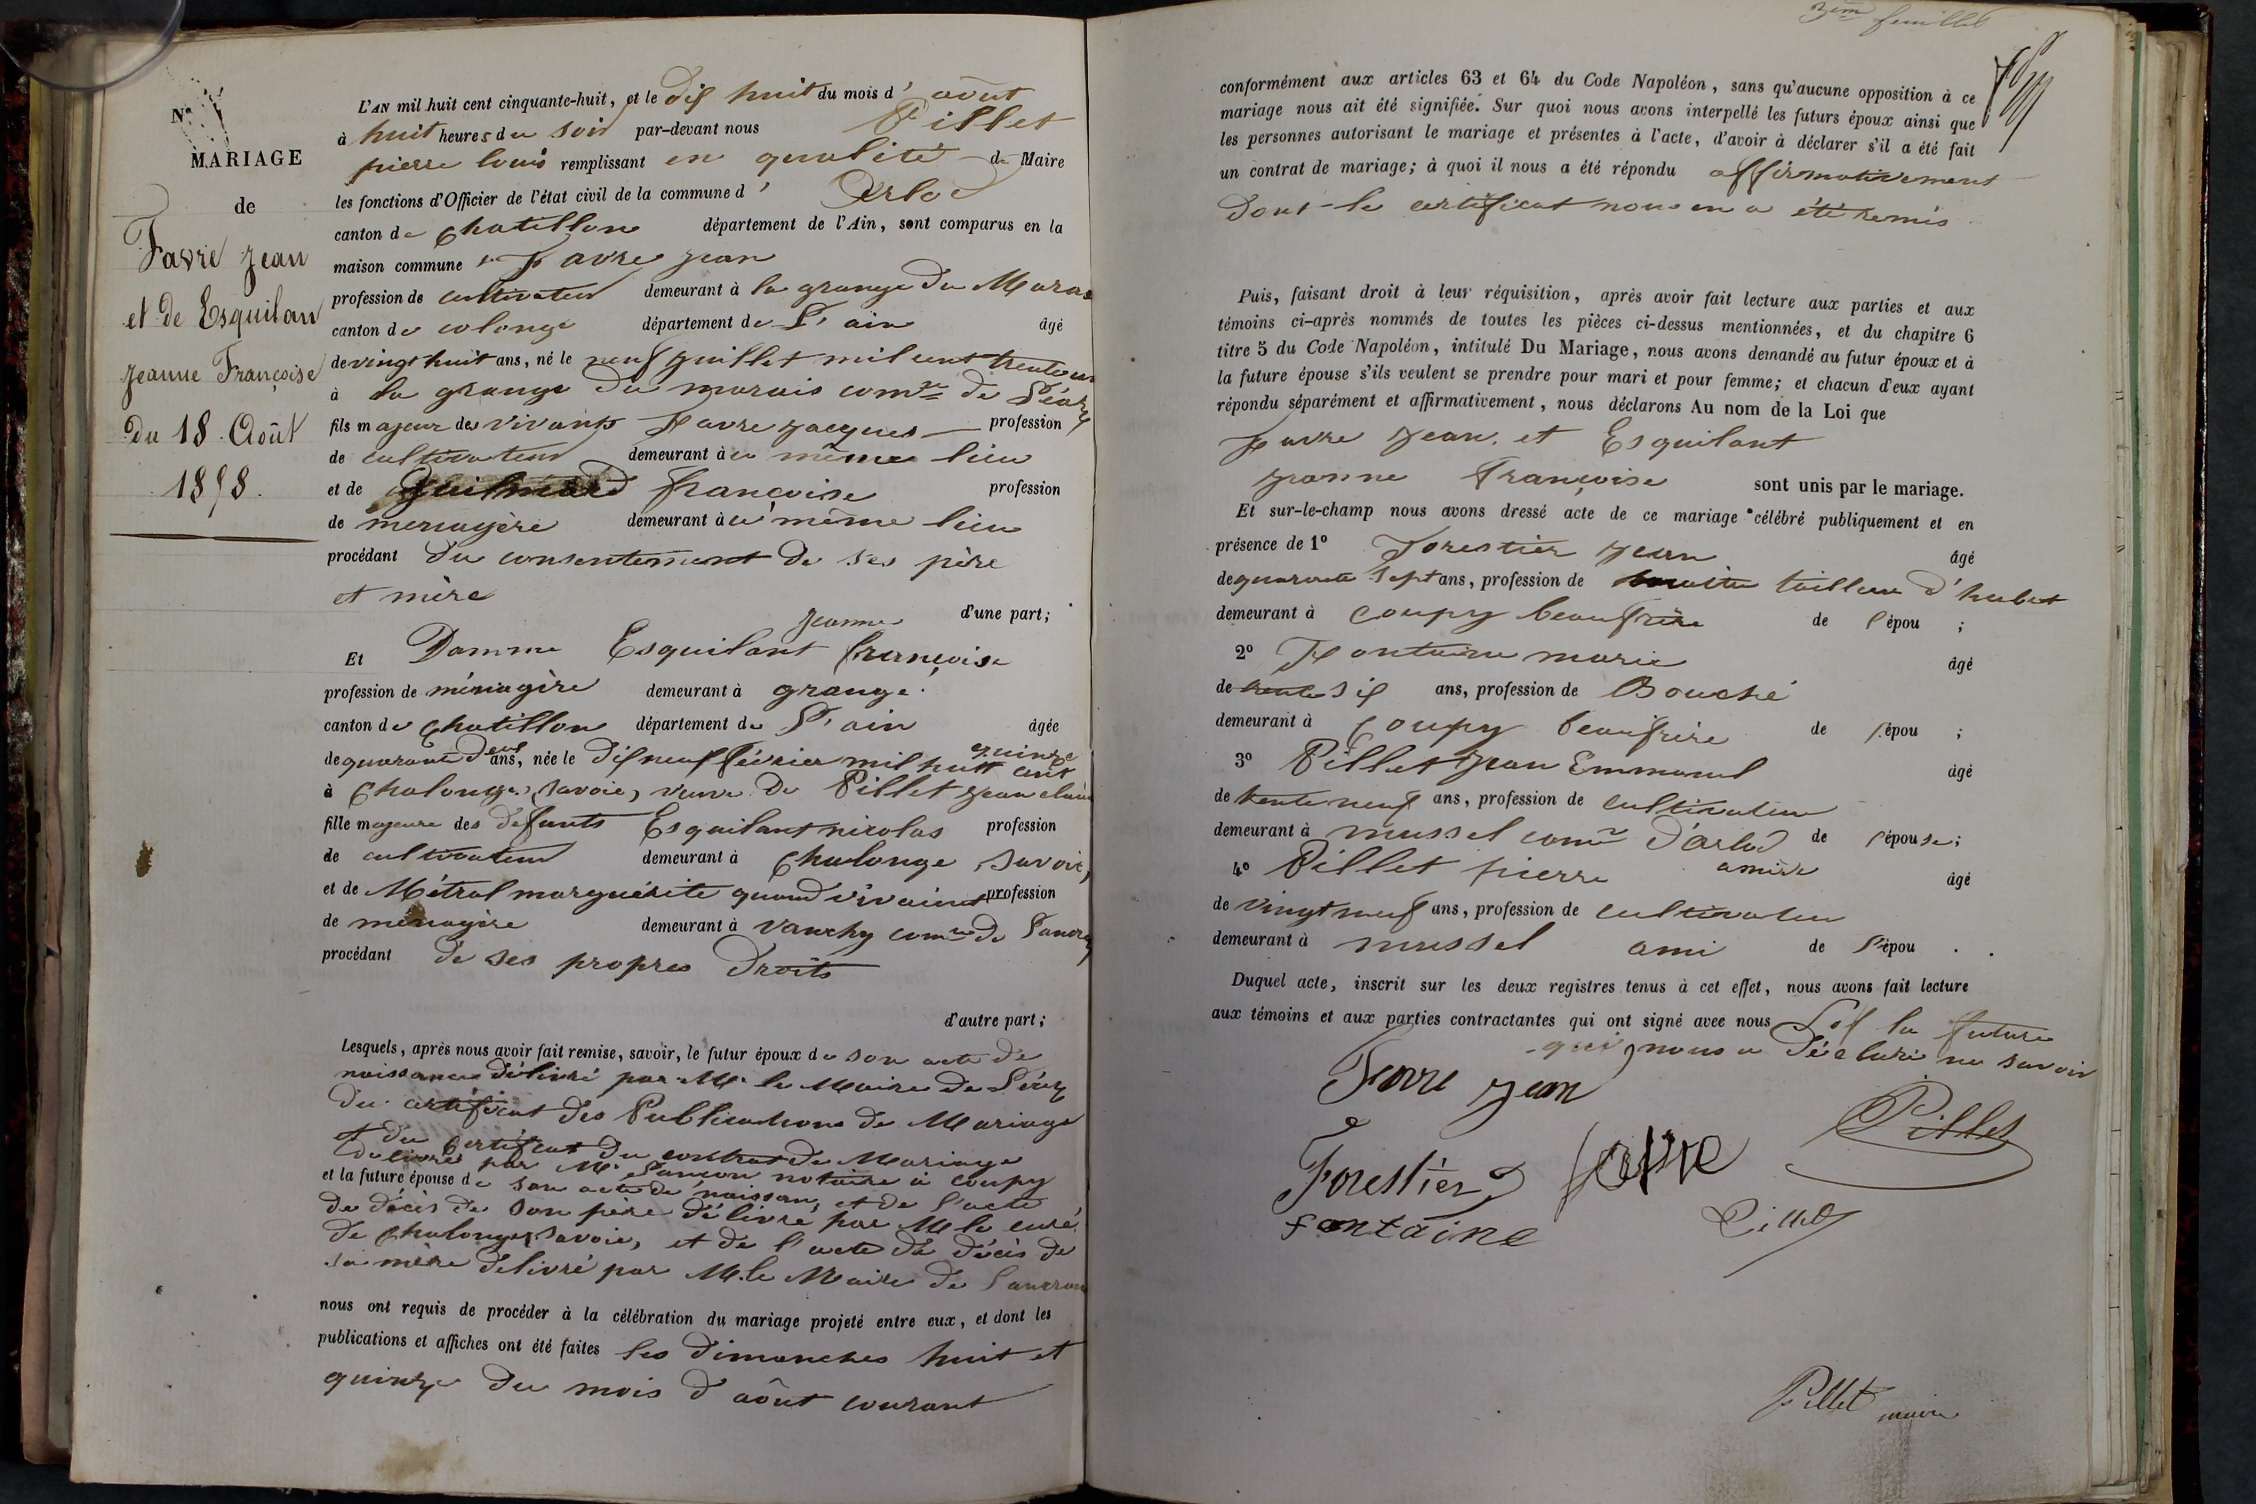 N°
MARIAGE
de
Favre Jean
et de Esquilan
Jeanne Françoise
Du 18 Août
1858.
L'AN mil huit cent cinquante-huit, et le dix huit du mois d' août
à huit heures du soir par-devant nous Pillet
pierre louis remplissant en qualité de Maire
les fonctions d'Officier de l'état civil de la commune d' Arlod
canton de chatillon département de l'Ain, sont comparus en la
maison commune favre jean
profession de cultivateur demeurant à la grange du Marais
canton de colonge département de l'ain âgé
de vingt huit ans, né le neuf juillet mil cent trente un
à la grange du marais comne de
fils majeur des vivants favre jacques profession
de cultivateur demeurant à ce même lieu
et de Guilmard françoise profession
de menagère demeurant à ce même lieu
procédant du consentement de ses père
et mère
d'une part;
Jeanne
Et Damme Esquilant françoise
profession de ménagère demeurant à grange
canton de chatillon département de l'ain âgée
de quarante deux ans, née le dix neuf février mil huit cent quinze
à chalonge, savoie, veuve de Pillet jean claude
fille majeure des defunts Esquilant nicolas profession
de cultivateur demeurant à chalonge, savoie,
et de Métral marguérite quand vivaient profession
de ménagère demeurant à vanchy comne de Lancran
procédant de ses propres droits
d'autre part;
Lesquels, après nous avoir fait remise, savoir, le futur époux de son acte de
naissance délivré par Mr le Maire de
du certificat des Publications de Mariage
et du certificat du contrat de Mariage
delivré par Mr notaire à coupy
et la future épouse de son acte de naissan, et de l'acte
de décès de son père délivré par M le curé
de chalonge, savoie, et de l'acte de décès de
sa mère delivré par M. le Maire de Lancran
nous ont requis de procéder à la célébration du mariage projeté entre eux, et dont les
publications et affiches ont été faites les dimanches huit et
quinze du mois d'août courant
3em feuillet
conformément aux articles 63 et 64 du Code Napoléon, sans qu'aucune opposition à ce
mariage nous ait été signifiée. Sur quoi nous avons interpellé les futurs époux ainsi que
les personnes autorisant le mariage et présentes à l'acte, d'avoir à déclarer s'il a été fait
un contrat de mariage; à quoi il nous a été répondu affirmativement
dont le certificat nous en a été remis
Puis, faisant droit à leur réquisition, après avoir fait lecture aux parties et aux
témoins ci-après nommés de toutes les pièces ci-dessus mentionnées, et du chapitre 6
titre 5 du Code Napoléon, intitulé Du Mariage, nous avons demandé au futur époux et à
la future épouse s'ils veulent se prendre pour mari et pour femme; et chacun d'eux ayant
répondu séparément et affirmativement, nous déclarons Au nom de la Loi que
favre jean et Esquilant
jeanne françoise sont unis par le mariage.
Et sur-le-champ nous avons dressé acte de ce mariage célébré publiquement et en
présence de 1° Forestier jean âgé
de quarante sept ans, profession de tailleur d'habet
demeurant à coupy beaufrère de l'épou ;
2° Fontaine marie âgé
de trente six ans, profession de Bouché
demeurant à Coupy beaufrère de l'épou ;
3° Pillet jean Emmanuel âgé
de trente neuf ans, profession de cultivateur
demeurant à mussel comne d'arlod de l'épouse;
4° Pillet pierre ami âgé
de vingt neuf ans, profession de cultivateur
demeurant à mussel ami de l'épou .
Duquel acte, inscrit sur les deux registres tenus à cet effet, nous avons fait lecture
aux témoins et aux parties contractantes qui ont signé avec nous sof la future
qui nous a déclaré ne savoir
Favre jean
Pillet
Forestier favre
Pillet
fontaine
Pillet maire